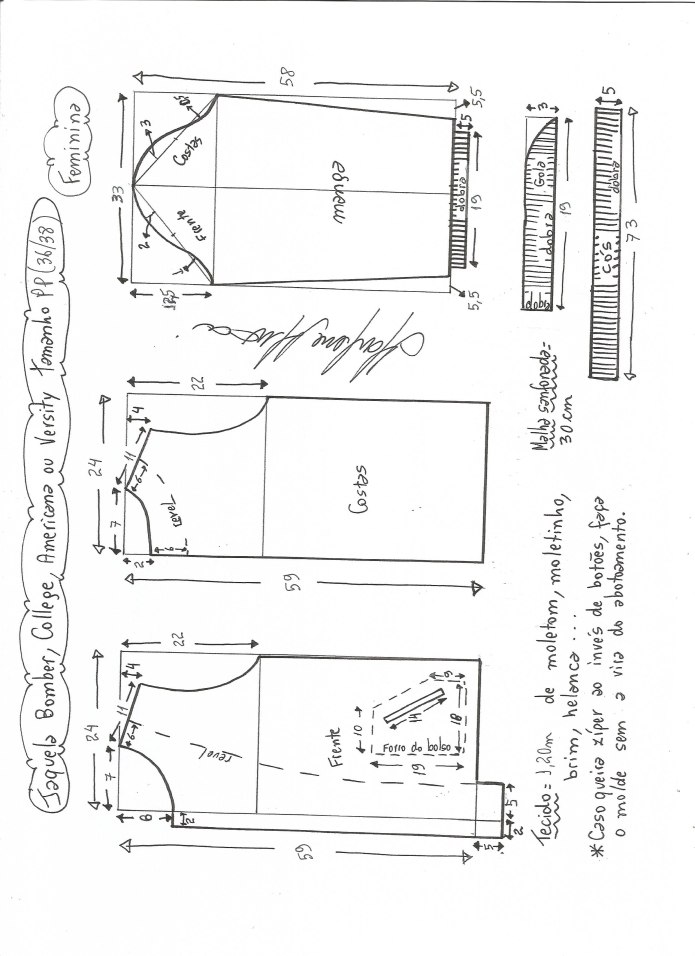 Jaqueta Bomber, College, Americana ou Versity Tamanho PP (36/38)
Feminina
59
8
2
7
24
11
4
6
22
revel
Frente
10
14
6
18
Forro do bolso
19
5
2
5
59
2
6
7
24
11
4
6
22
revel
Costas
33
58
13,5
Frente
Costas
1
2
3
manga
dobra
5
19
5,5
5,5
Gola
dobra
dobra
3
19
cós
dobra
5
73
Malha sanfonada=
30 cm
Tecido = 1,20m de moletom, moletinho,
brim, helanca ....
* Caso queira zíper ao invés de botões, faça
o molde sem a vira do abotoamento.